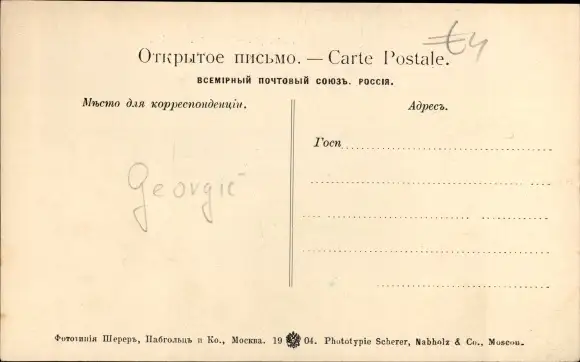 €4
Открытое письмо. — Carte Postale.
ВСЕМІРНЫЙ ПОЧТОВЫЙ СОЮЗЪ. РОССІЯ.
Мѣсто для корреспонденціи.
Адресъ.
Госп
Georgie
Фототипія Шереръ, Набгольцъ и Ко., Москва. 19 04. Phototypie Scherer, Nabholz & Co., Moscou.